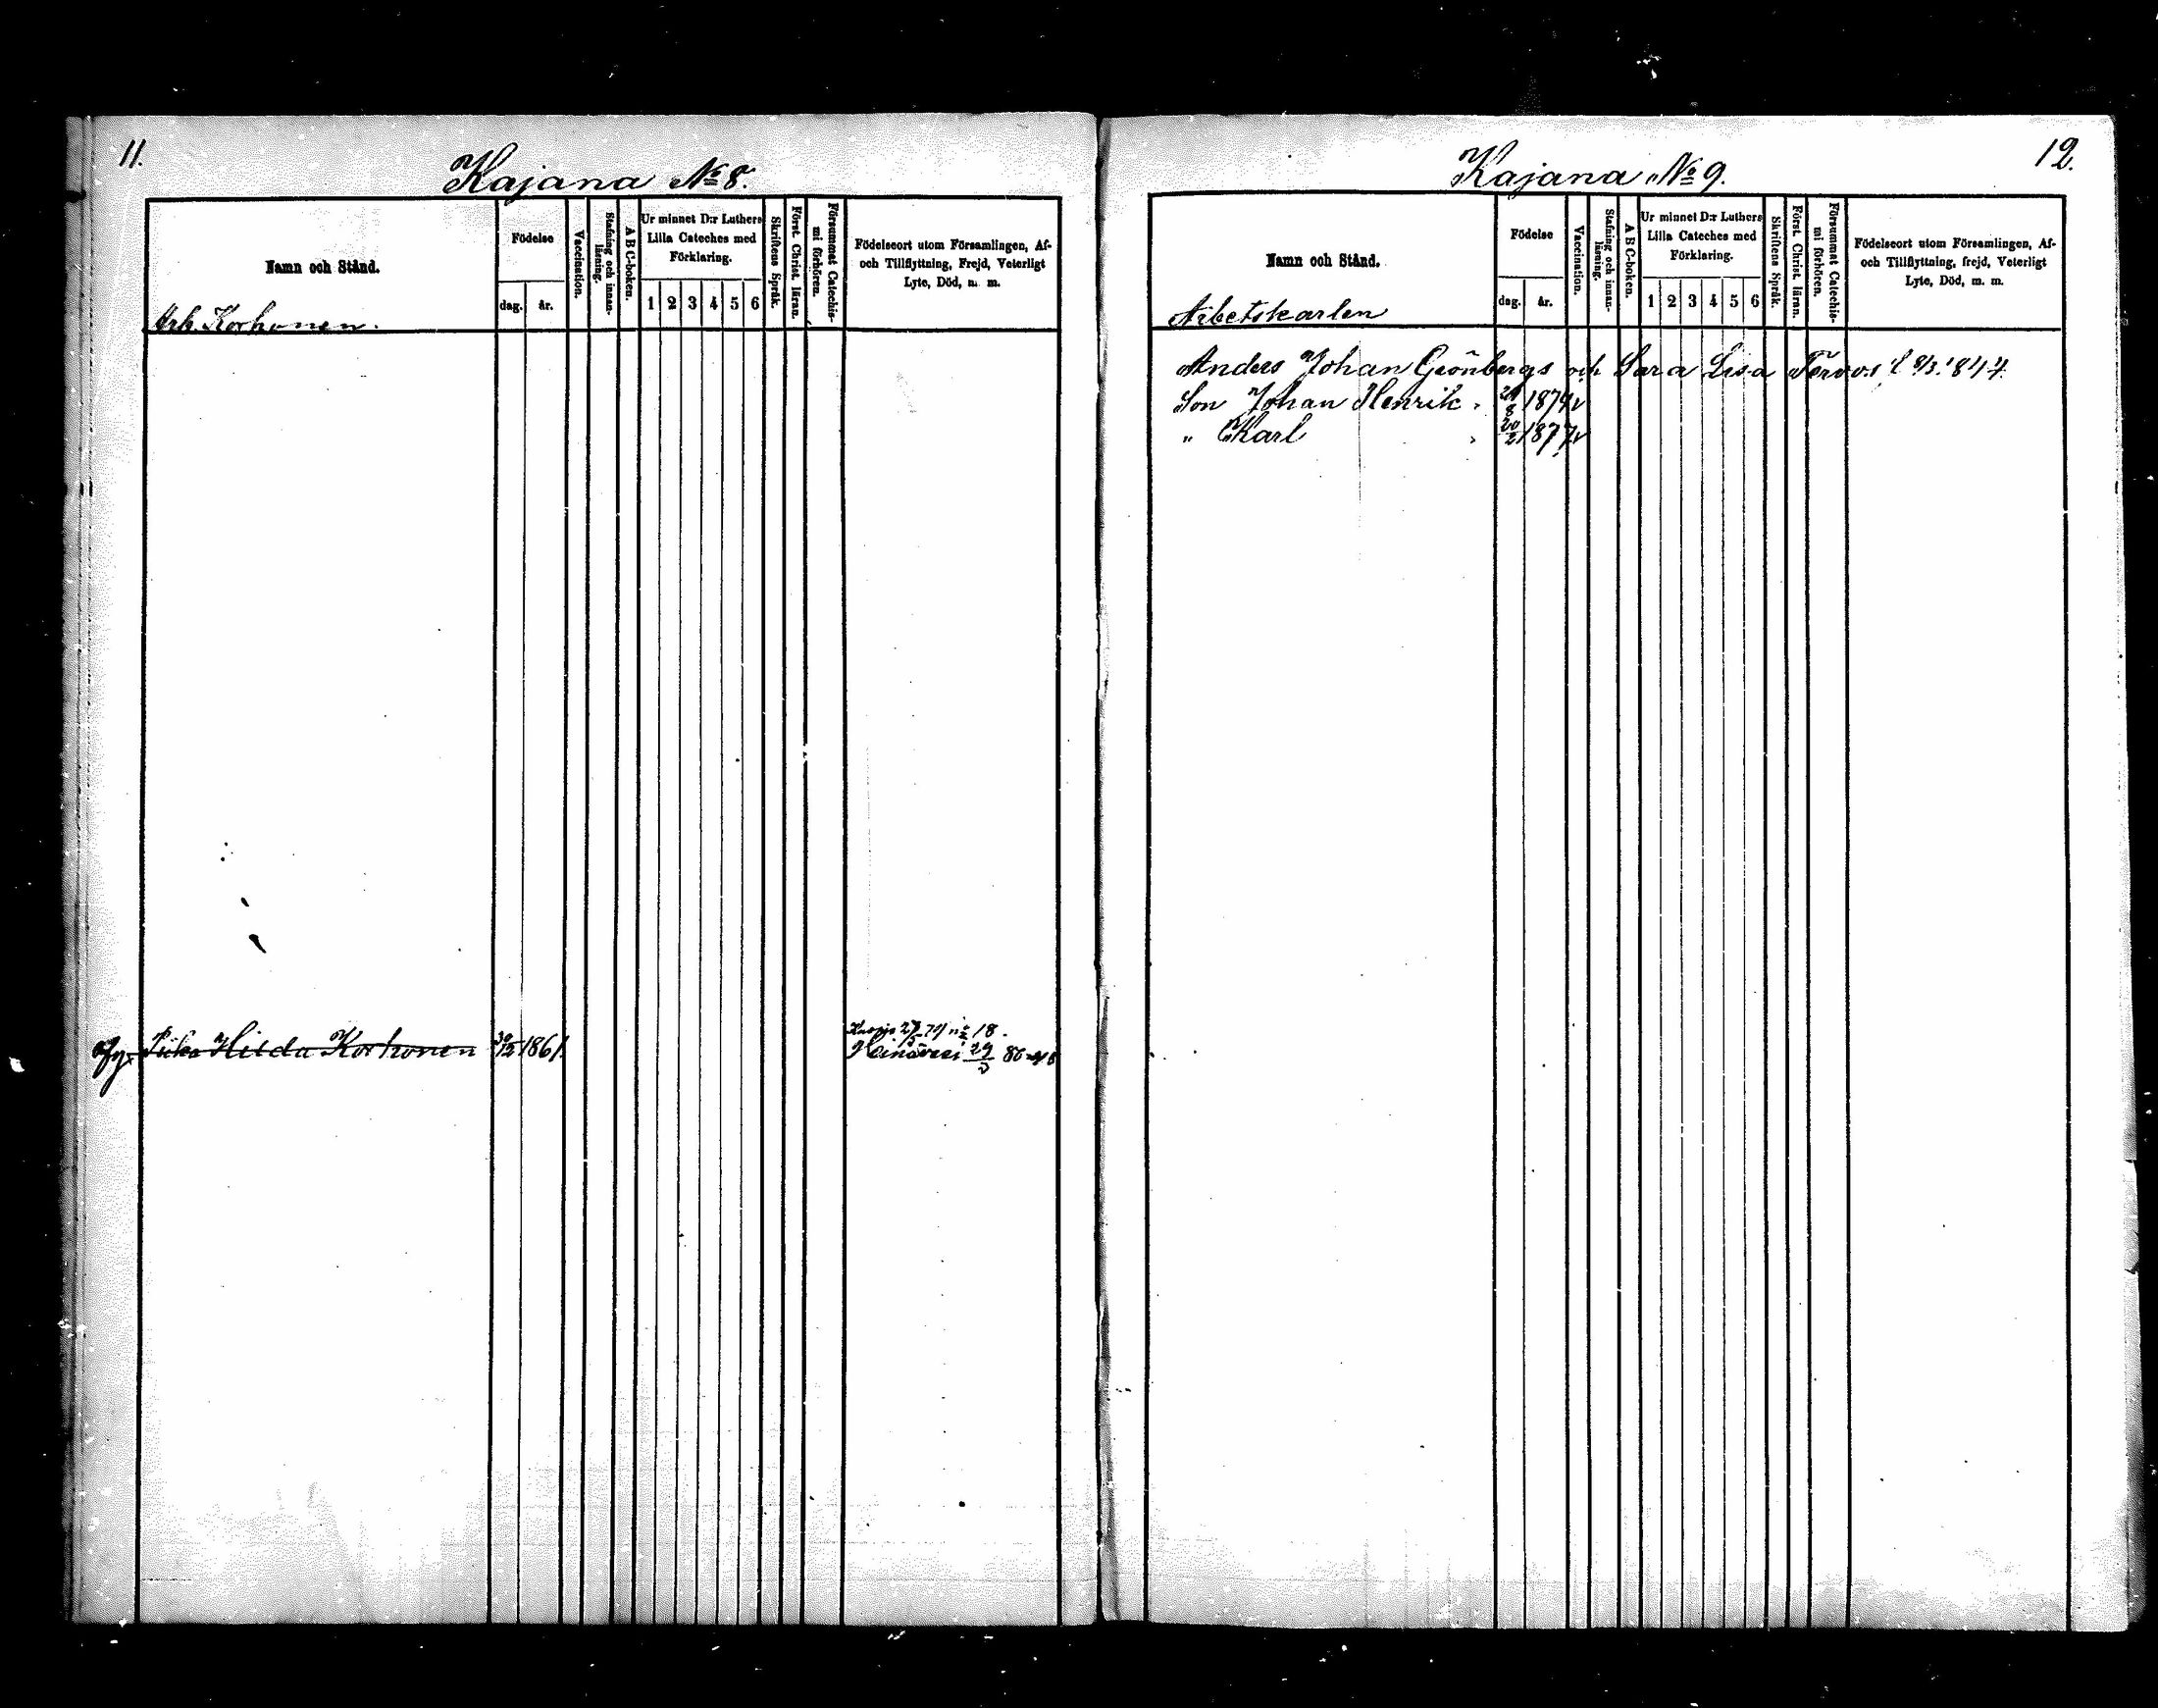 11.
Kajana № 8.
Namn och Stånd.
Födelse
dag.
år.
Vaccination.
Stafning och innan-
läsning.
A B C-boken.
Ur minnet D:r Luthers
Lilla Cateches med
Förklaring.
1 2 3 4 5 6
Skriftens Språk.
Först. Christ. läran.
Försummat Catechis-
mi förhören.
Födelseort utom Församlingen, Af-
och Tillflyttning, Frejd, Veterligt
Lyte, Död, m. m.
Arb. Korhonen.
Hilda Korhonen 30/12 1861.
18.
29 80
12.
Kajana № 9.
Namn och Stånd.
Födelse
dag.
år.
Vaccination.
Stafning och innan-
läsning.
A B C-boken.
Ur minnet D:r Luthers
Lilla Cateches med
Förklaring.
1 2 3 4 5 6
Skriftens Språk.
Först. Christ. läran.
Försummat Catechis-
mi förhören.
Födelseort utom Församlingen, Af-
och Tillflyttning, frejd, Veterligt
Lyte, Död, m. m.
Arbetskarlen
Anders Johan Grönbergs och Sara Lisa
Son Johan Henrik 1874 v
" Karl 20/2 1877 v